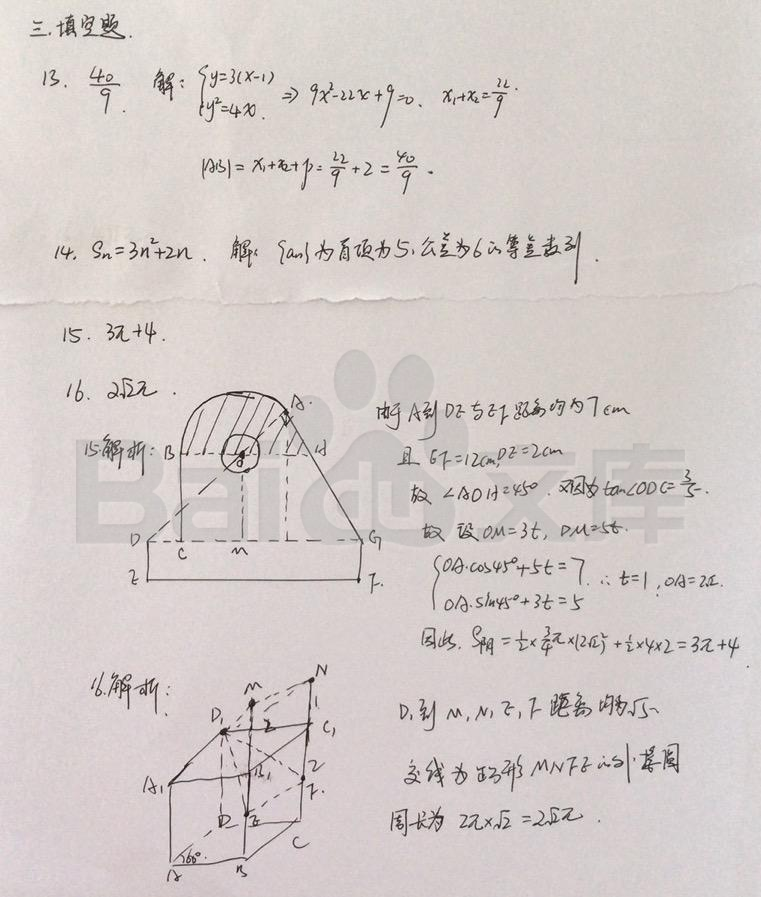 三.填空题.
13. 40/9. 解: {y=3(x-1) y²=4x. ⇒ 9x²-22x+9=0. x₁+x₂=22/9.
|AB|=x₁+x₂+p=22/9+2=40/9.
14. Sn=3n²+2n. 解: {an}为首项为5,公差为6的等差数列.
15. 3π+4.
16. 2√2π.
15.解析:
A.
B
H
D
C
M
G
E
F.
由于A到DE与EF距离均为7cm
且 EF=12cm, DE=2cm
故 ∠AOH=45°. 又因为tan∠ODC=3/5.
故 设OM=3t, DM=5t.
{OA·cos45°+5t=7 OA·sin45°+3t=5 ∴t=1, OA=2√2.
因此, S阴=1/2×3/4π×(2√2)²+1/2×4×2=3π+4.
16.解析:
N
M
1
D₁
2
C₁
A₁
B₁
2
F.
D
E
C
60°
A
B
D₁到M,N,E,F距离均为√5
交线为正方形MNFE的外接圆
周长为 2π×√2=2√2π.
Bai du 文库